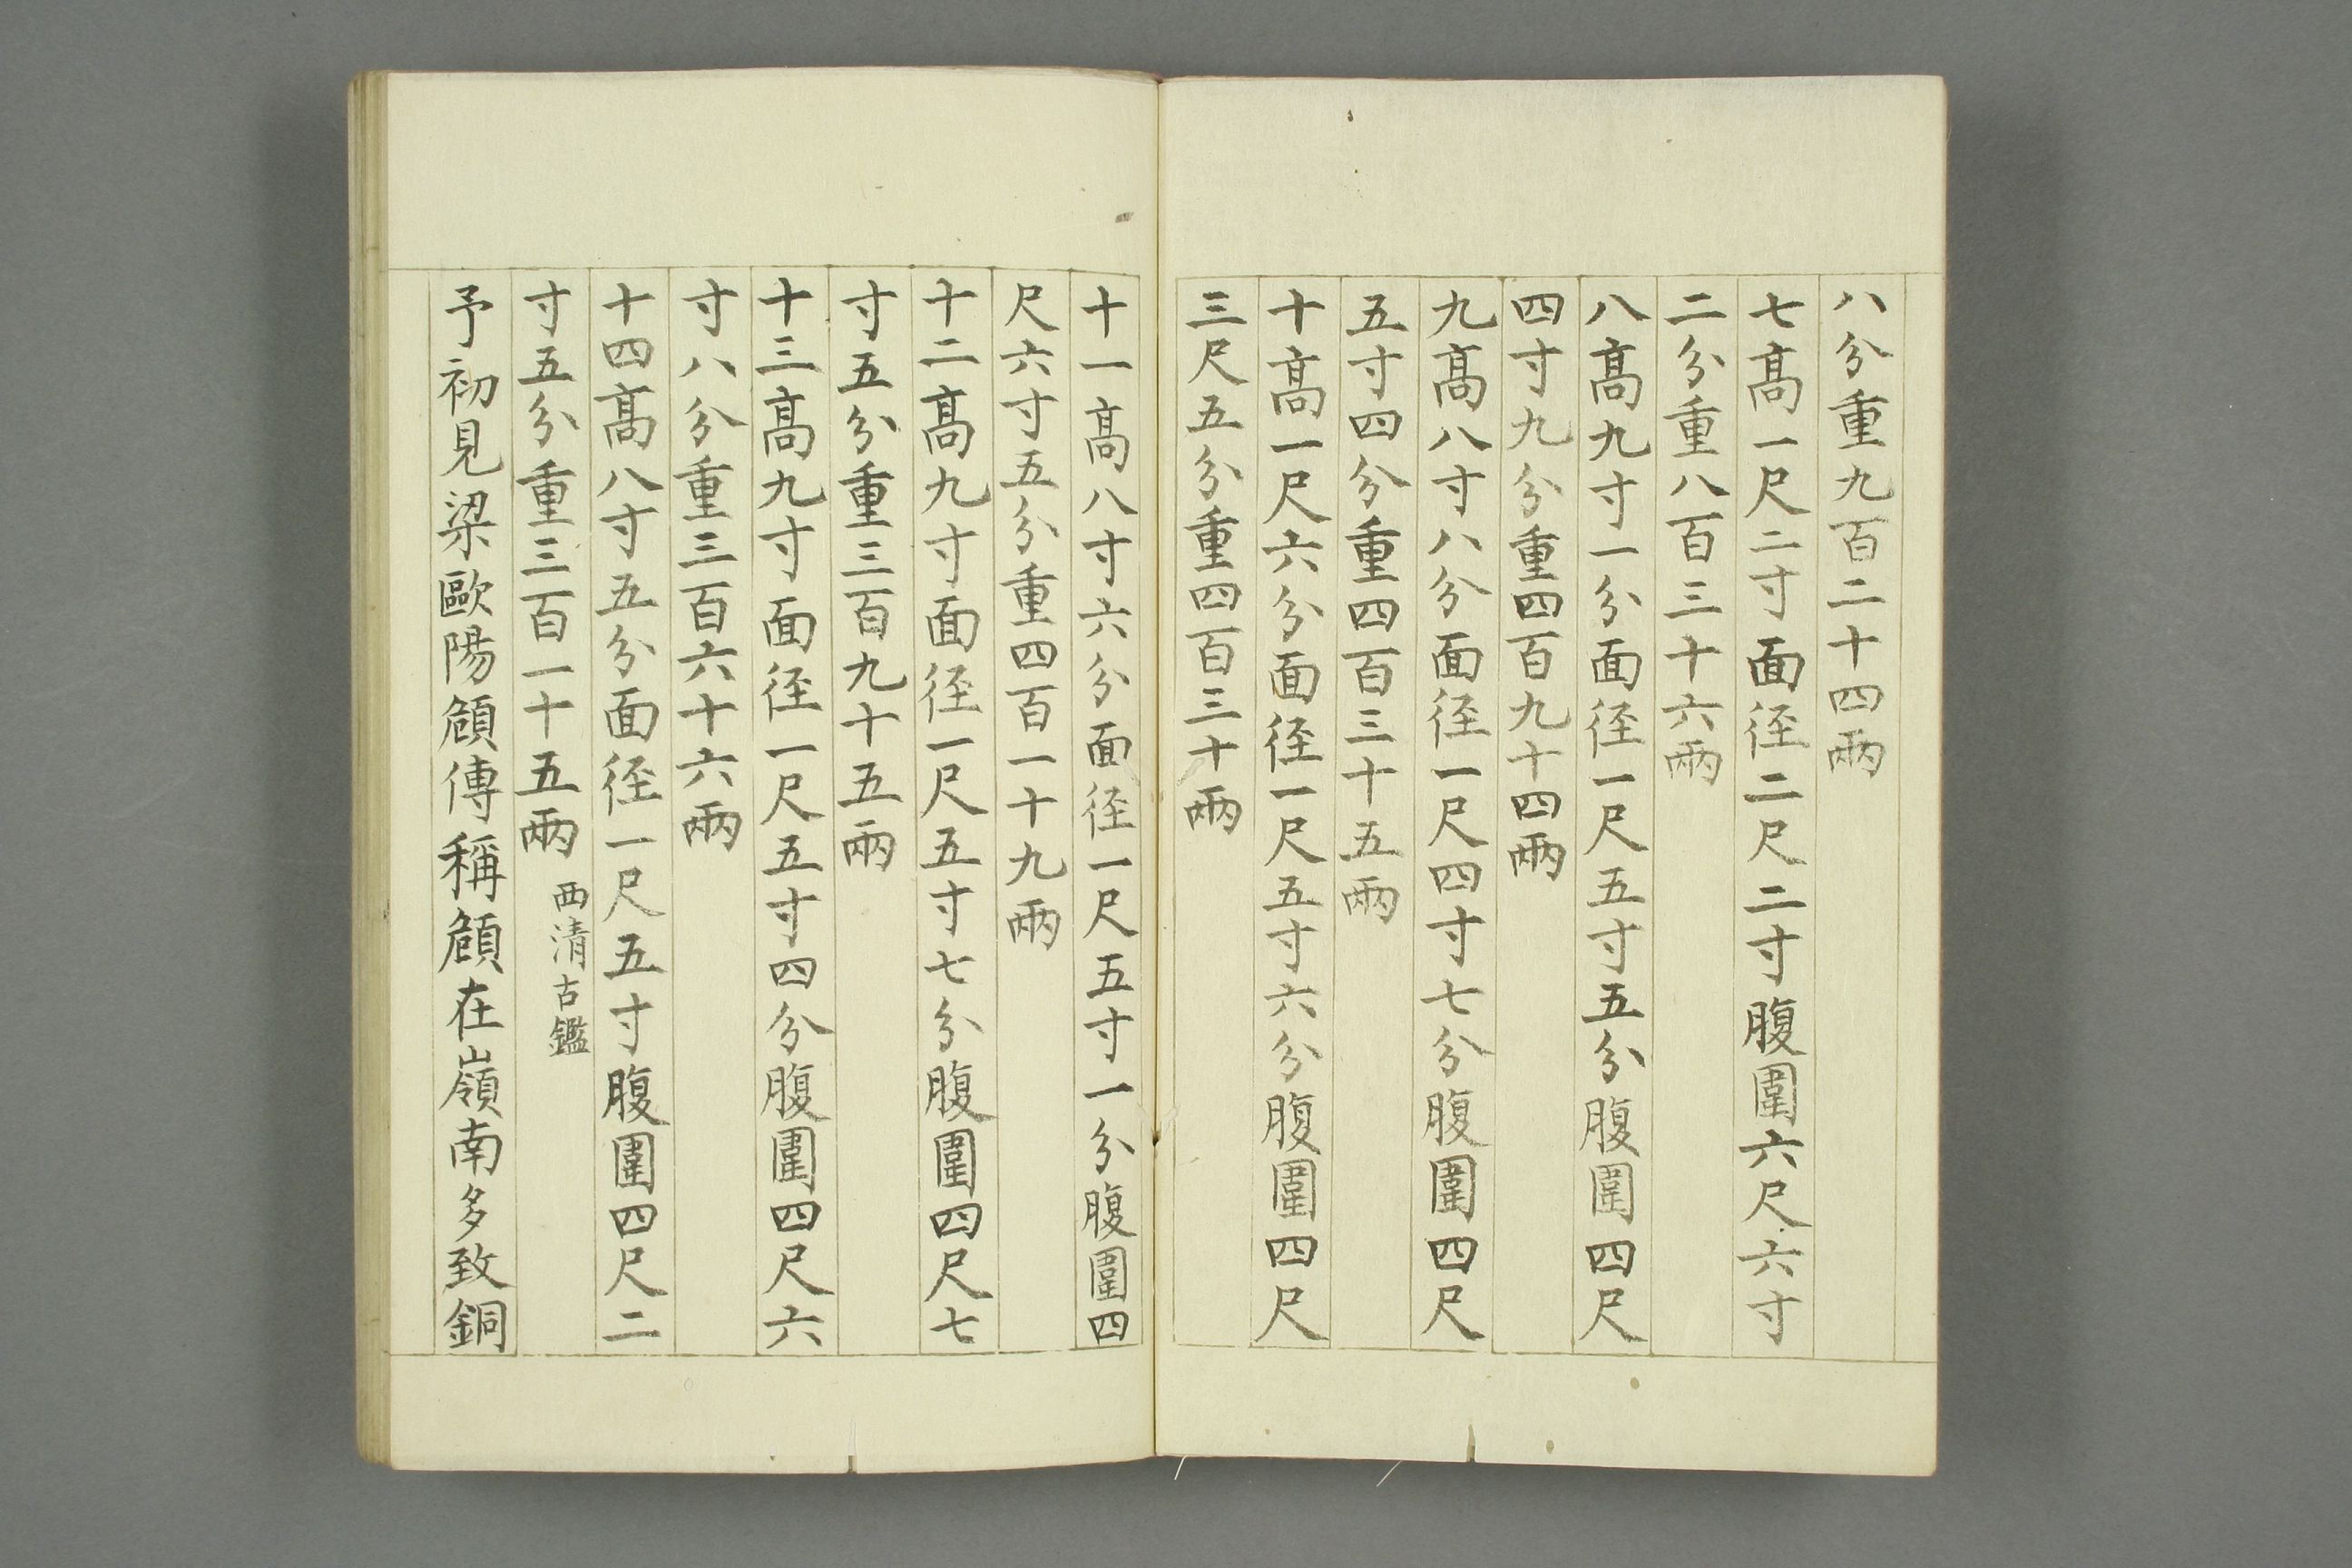 八分重九百二十四兩
七髙一尺二寸面徑二尺二寸腹圍六尺六寸
二分重八百三十六兩
八髙九寸一分面徑一尺五寸五分腹圍四尺
四寸九分重四百九十四兩
九髙八寸八分面徑一尺四寸七分腹圍四尺
五寸四分重四百三十五兩
十髙一尺六分面徑一尺五寸六分腹圍四尺
三尺五分重四百三十兩
十一髙八寸六分面徑一尺五寸一分腹圍四
尺六寸五分重四百一十九兩
十二髙九寸面徑一尺五寸七分腹圍四尺七
寸五分重三百九十五兩
十三髙九寸面徑一尺五寸四分腹圍四尺六
寸八分重三百六十六兩
十四髙八寸五分面徑一尺五寸腹圍四尺二
寸五分重三百一十五兩 西清古鑑
予初見梁歐陽頠傳稱頠在嶺南多致銅